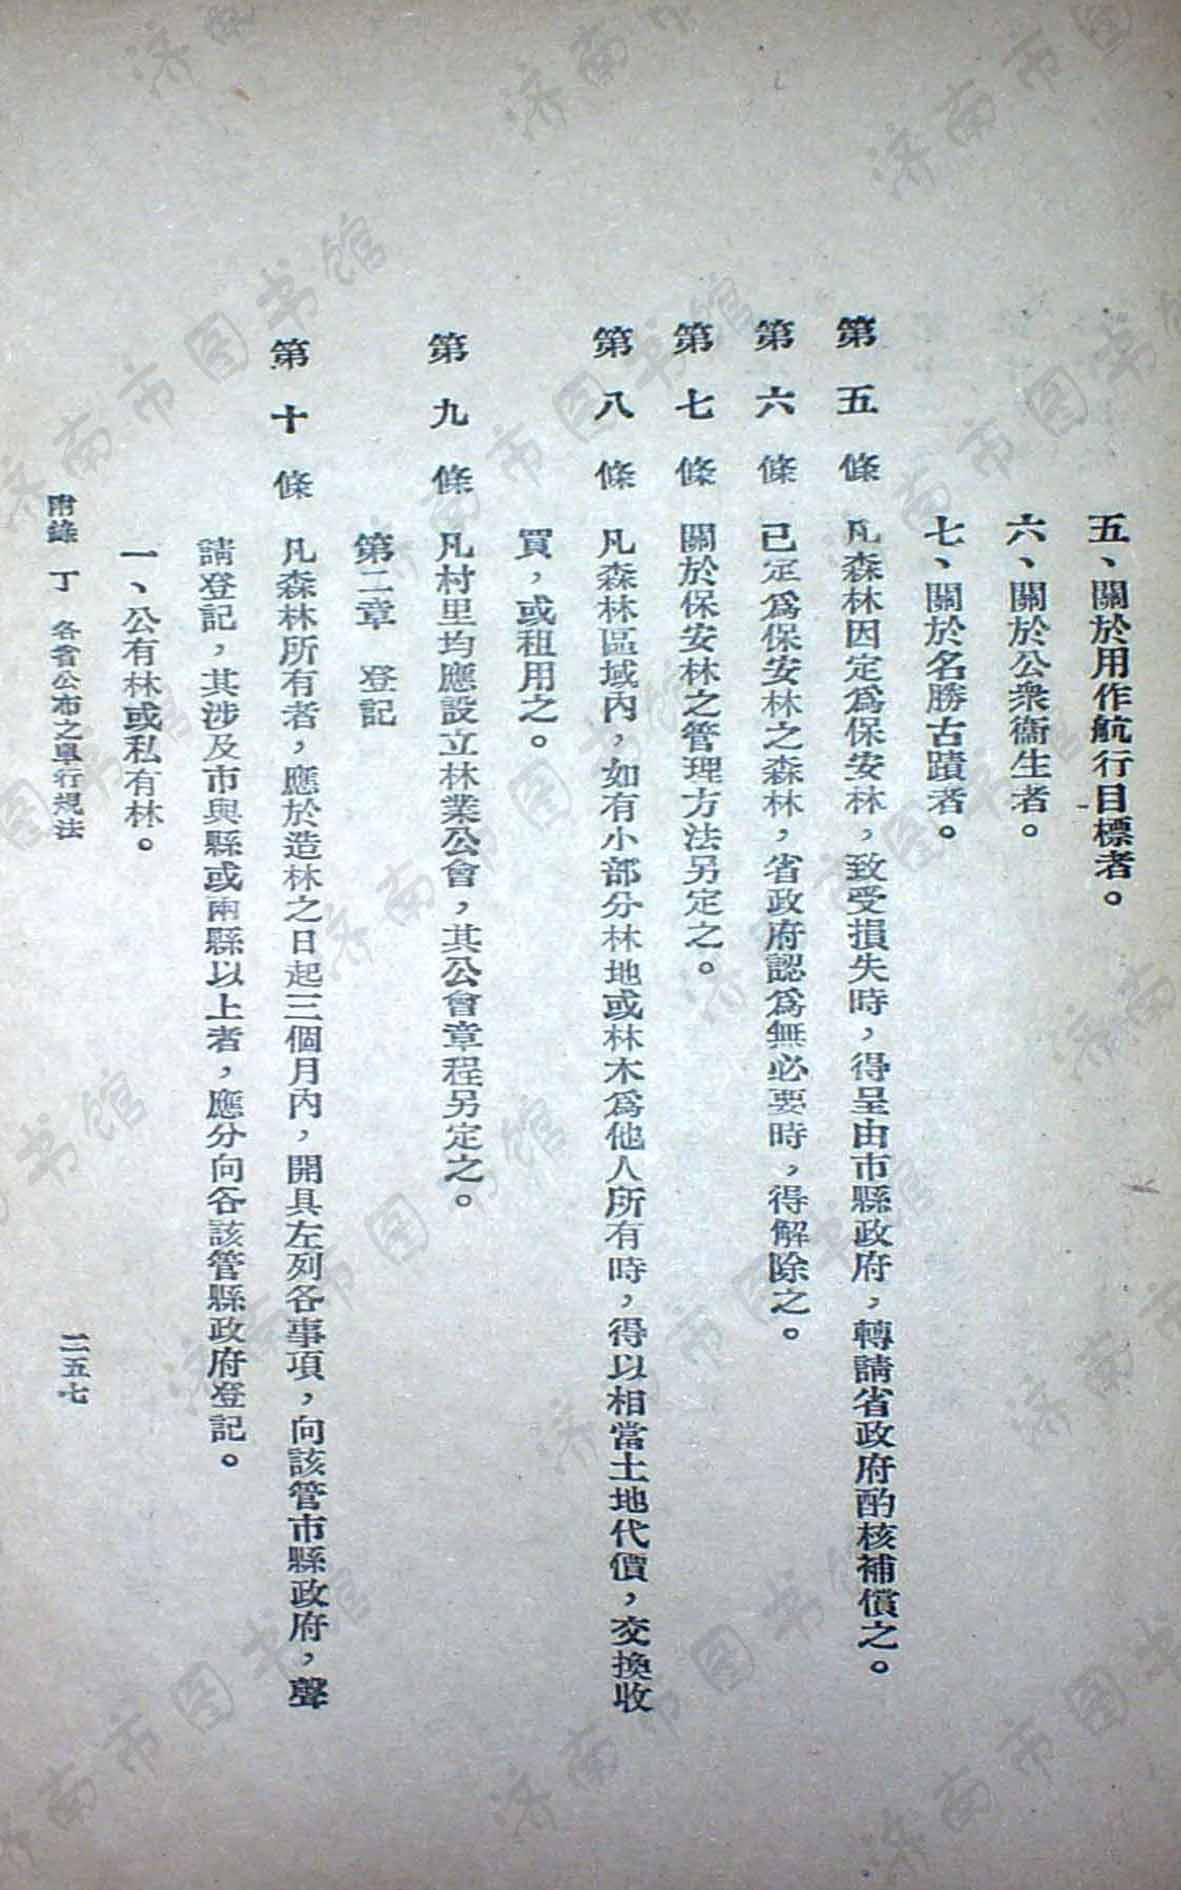 五、關於用作航行目標者。
六、關於公衆衞生者。
七、關於名勝古蹟者。
第五條　凡森林因定爲保安林，致受損失時，得呈由市縣政府，轉請省政府酌核補償之。
第六條　已定爲保安林之森林，省政府認爲無必要時，得解除之。
第七條　關於保安林之管理方法另定之。
第八條　凡森林區域內，如有小部分林地或林木爲他人所有時，得以相當土地代價，交換收
買，或租用之。
第九條　凡村里均應設立林業公會，其公會章程另定之。
第二章　登記
第十條　凡森林所有者，應於造林之日起三個月內，開具左列各事項，向該管市縣政府，聲
請登記，其涉及市與縣或兩縣以上者，應分向各該管縣政府登記。
一、公有林或私有林。
附錄　丁　各省公布之單行規法
二五七
济南市图书馆